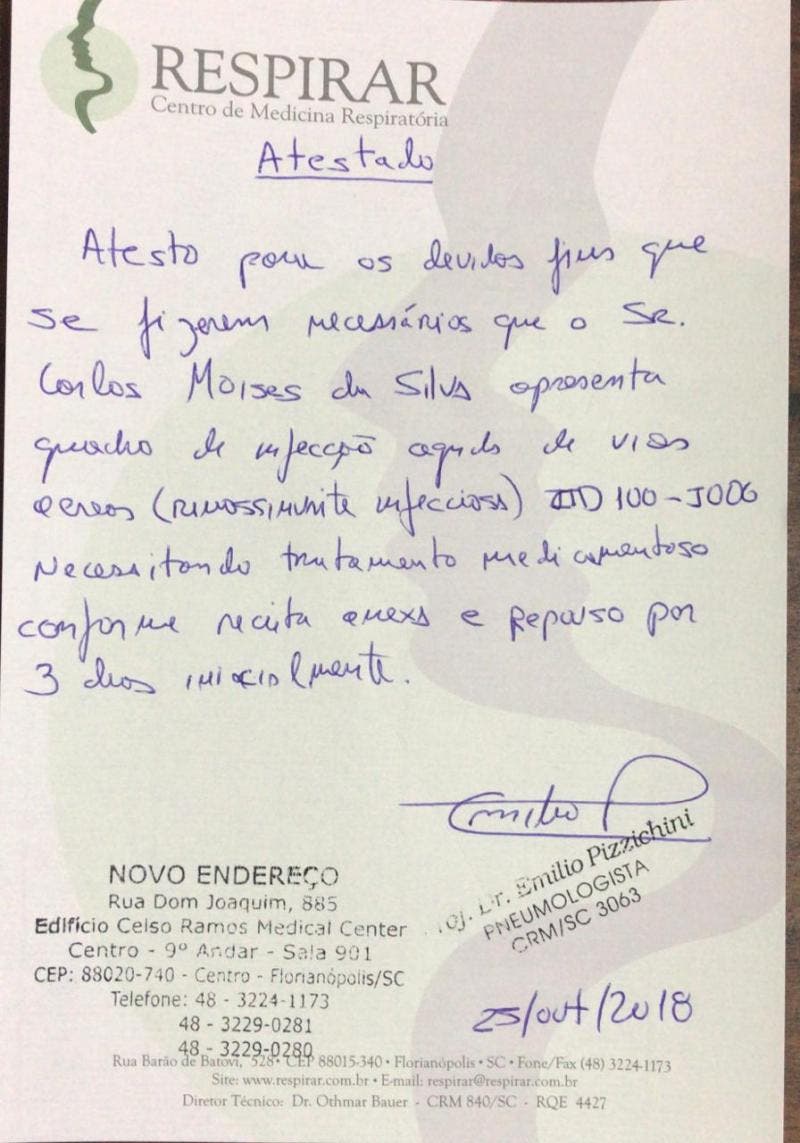 RESPIRAR
Centro de Medicina Respiratória
Atestado
Atesto para os devidos fins que
se fizerem necessários que o Sr.
Carlos Moises da Silva apresenta
quadro de infecção aguda de vias
aereas (rinossinusite infecciosa) CID J00-J006
Necessitando tratamento medicamentoso
conforme receita anexa e repouso por
3 dias inicialmente.
Emilio P
Prof. Dr. Emilio Pizzichini
PNEUMOLOGISTA
CRM/SC 3063
NOVO ENDEREÇO
Rua Dom Joaquim, 885
Edifício Celso Ramos Medical Center
Centro - 9º Andar - Sala 901
CEP: 88020-740 - Centro - Florianópolis/SC
Telefone: 48 - 3224-1173
48 - 3229-0281
48 - 3229-0280
25/out/2018
Rua Barão de Batovi, 528 • CEP 88015-340 • Florianópolis • SC • Fone/Fax (48) 3224-1173
Site: www.respirar.com.br • E-mail: respirar@respirar.com.br
Diretor Técnico: Dr. Othmar Bauer - CRM 840/SC - RQE 4427